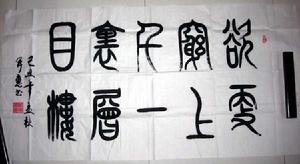 欲窮千裏目
更上一層樓
己丑年立秋